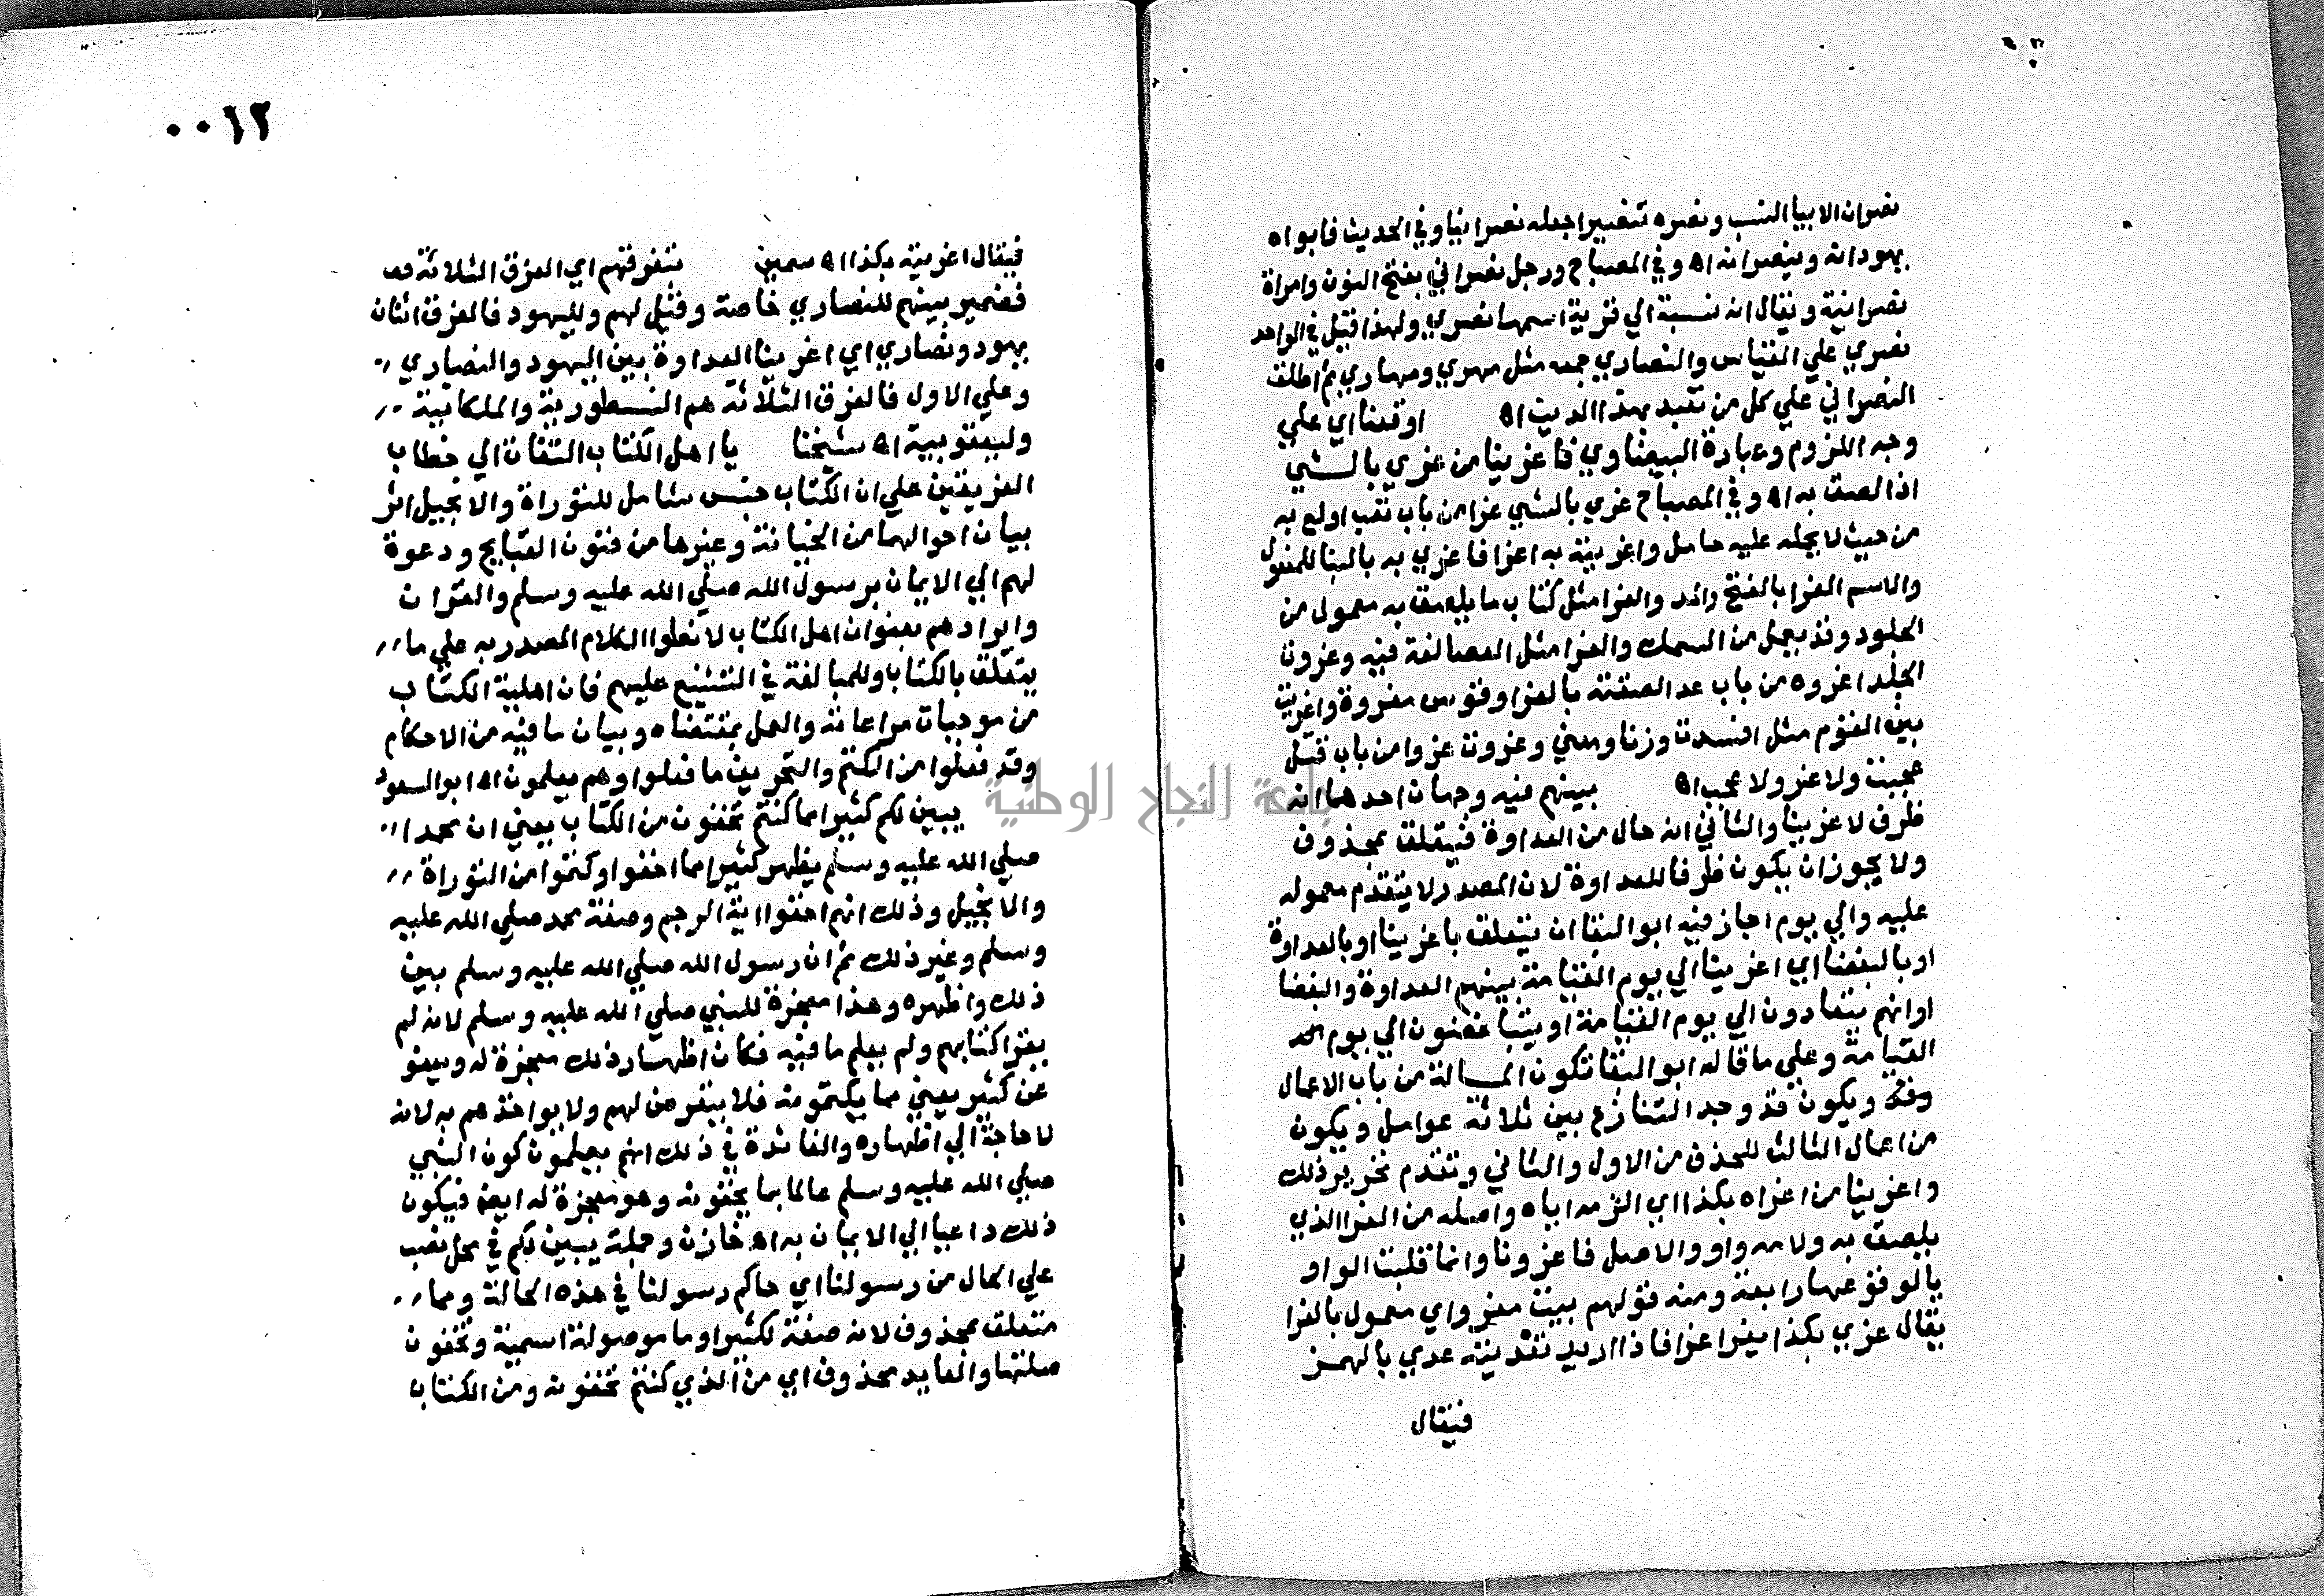 نصران الا بيا النسب ونصره تنصيرا جعله نصرانيا وفي الحديث فابواه
يهودانه وينصرانه اه وفي المصباح ورجل نصراني بفتح النون وامراة
نصرانية ويقال انه نسبة الي قرية اسمها نصري ولهذا قيل في الواحد
نصري علي القياس والنصاري جمعه مثل مهري ومهاري ثم اطلق
النصراني علي كل من تعبد بهذا الدين اه اوقعنا اي علي
وجه اللزوم وعبارة البيضاوي فاغرينا من غري بالشي
اذا لصق به اه وفي المصباح غري بالشي غرا من باب تعب اولع به
من حيث لا يحمله عليه حامل واغريته به اغرا فاغري به بالبنا للمفعول
والاسم الغرا بالفتح والمد والغرا مثل كتاب ما يلصق به معمول من
الجلود وقد يعمل من السمك والغرا مثل العصا لغة فيه وغروت
الجلد اغروه من باب عدا الصقته بالغرا وقوس مغروة واغريت
بين القوم مثل افسدت وزنا ومعني وغروت غروا من باب قتل
عجبت ولا غرو ولا عجب اه بينهم فيه وجهان احدهما انه
ظرف لاغرينا والثاني انه حال من العداوة فيتعلق بمحذوف
ولا يجوز ان يكون ظرفا للعداوة لان المصدر لا يتقدم معموله
عليه والي يوم اجاز فيه ابو البقا ان يتعلق باغرينا او بالعداوة
او بالبغضا اي اغرينا الي يوم القيامة بينهم العداوة والبغضا
او انهم يتعادون الي يوم القيامة او يتباغضون الي يوم
القيامة وعلي ما قاله ابو البقا تكون المسالة من باب الاعمال
ويكون قد وجد التنازع بين ثلاثة عوامل ويكون
من اعمال الثالث للحذف من الاول والثاني وتقدم تحرير ذلك
واغرينا من اغراه بكذا اي الزمه اياه واصله من الغرا الذي
يلصق به ولامه واو والاصل فاغرونا وانما قلبت الواو
يا لوقوعها رابعة ومنه قولهم بيت مغرو اي معمول بالغرا
يقال غري بكذا يغرا غرا فاذا اريد تعديته عدي بالهمز
فيقال
٠٠١٢
فيقال اغريته بكذا اه سمين بتفرقهم اي الفرق الثلاثة
فضمير بينهم للنصاري خاصة وقيل لهم ولليهود فالفرق اثنان
يهود ونصاري اي اغرينا العداوة بين اليهود والنصاري
وعلي الاول فالفرق الثلاثة هم النسطورية والملكانية
وليعقوبية اه شيخنا يا اهل الكتاب التفات الي خطاب
الفريقين علي ان الكتاب جنس شامل للتوراة والانجيل اثر
بيان احوالهما من الخيانة وغيرها من فنون القبايح ودعوة
لهم الي الايمان برسول الله صلي الله عليه وسلم والقران
وايرادهم بعنوان اهل الكتاب لانطوا الكلام المصدر به علي ما
يتعلق بالكتاب وللمبالغة في التشنيع عليهم فان اهلية الكتاب
من موجبات مراعاته والعمل بمقتضاه وبيان ما فيه من الاحكام
وقد فعلوا من الكتم والتحريف ما فعلوا وهم يعلمون اه ابو السعود
يبين لكم كثيرا مما كنتم تخفون من الكتاب يعني ان محمدا
صلي الله عليه وسلم يظهر كثيرا مما اخفوا وكتموا من التوراة
والانجيل وذلك انهم اخفوا اية الرجم وصفة محمد صلي الله عليه
وسلم وغير ذلك ثم ان رسول الله صلي الله عليه وسلم بين
ذلك واظهره وهذا معجزة للنبي صلي الله عليه وسلم لانه لم
يقرا كتابهم ولم يعلم ما فيه فكان اظهار ذلك معجزة له ويعفو
عن كثير يعني مما يكتمونه فلا يتعرض لهم ولا يواخذهم به لانه
لا حاجة الي اظهاره والفائدة في ذلك انهم يعلمون كون النبي
صلي الله عليه وسلم عالما بما يخفونه وهو معجزة له ايضا فيكون
ذلك داعيا الي الايمان به اه خازن وجملة يبين لكم في محل نصب
علي الحال من رسولنا اي جاكم رسولنا في هذه الحالة ومما
متعلق بمحذوف لانه صفة لكثيرا وما موصولة اسمية وتخفون
صلتها والعايد محذوف اي من الذي كنتم تخفونه ومن الكتاب
جامعة النجاح الوطنية